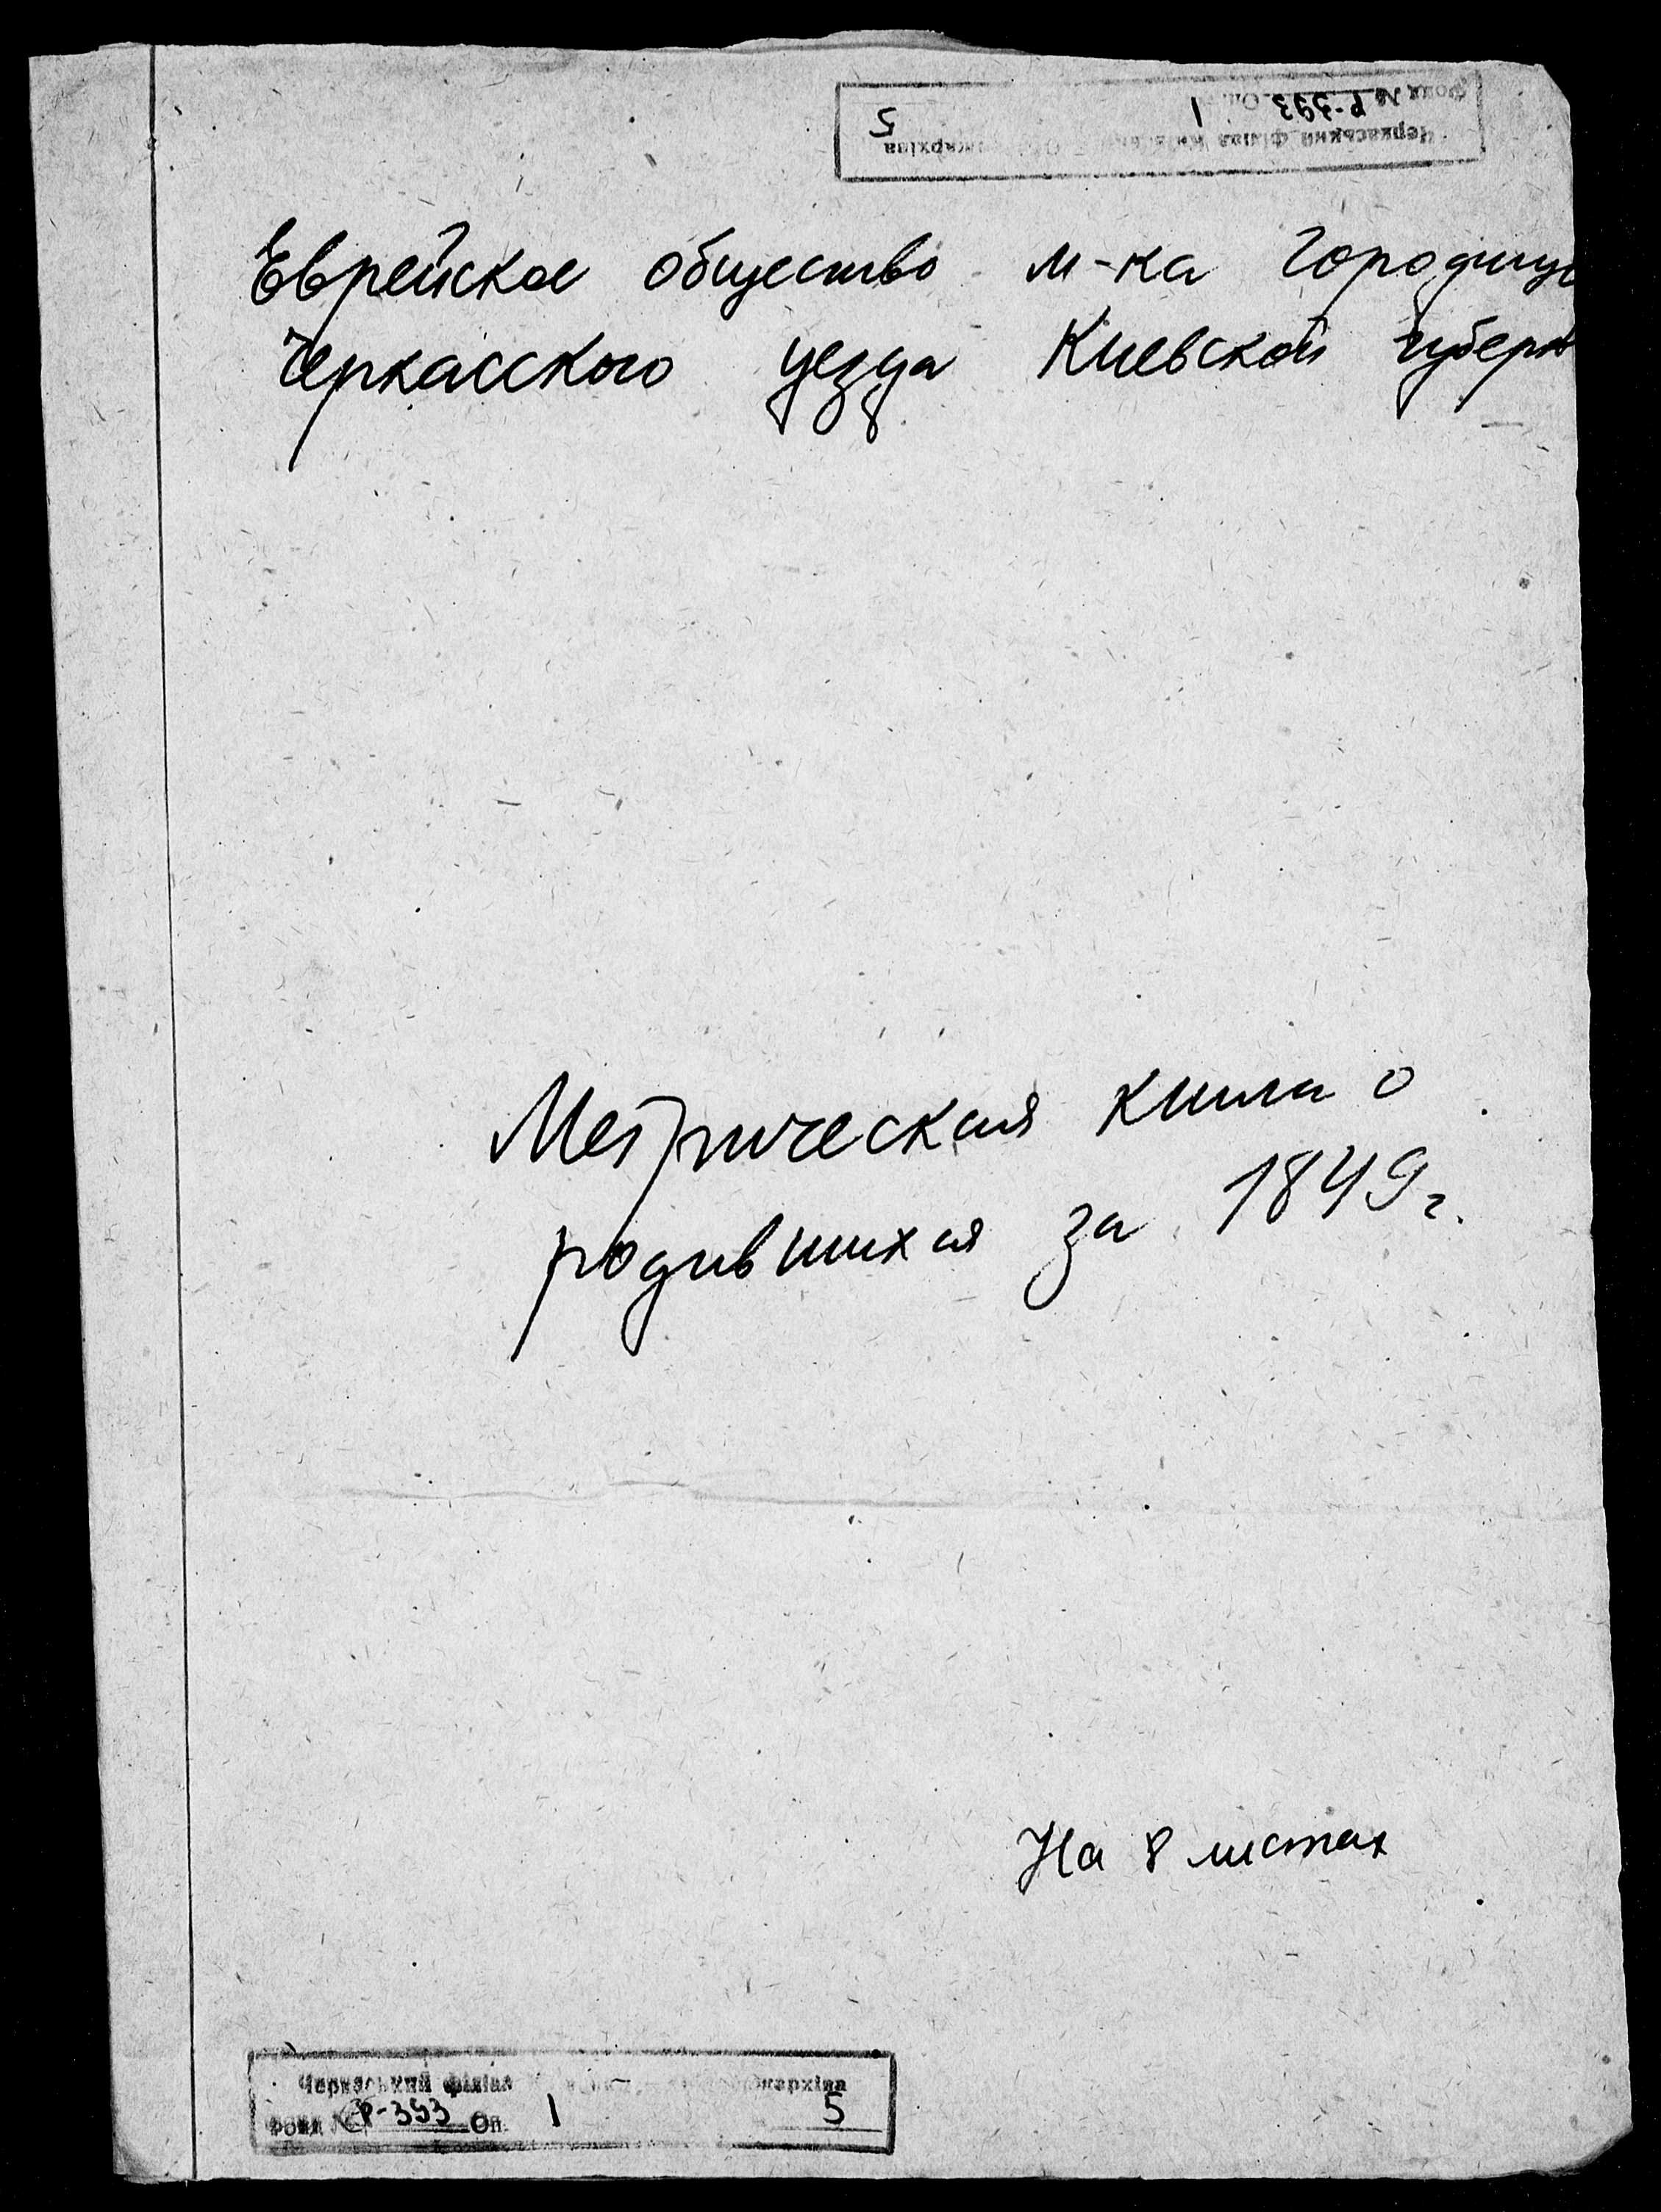 Черкаський філіал облдержархіва
Фонд № Р-393 Оп. 1 5
Еврейское общество м-ка Городищ
Черкасского уезда Киевской губерн
Метрическая книга о
родившихся за 1849 г.
На 8 листах
Черкаський філіал
Фонд № Р-393 Оп. 1 5